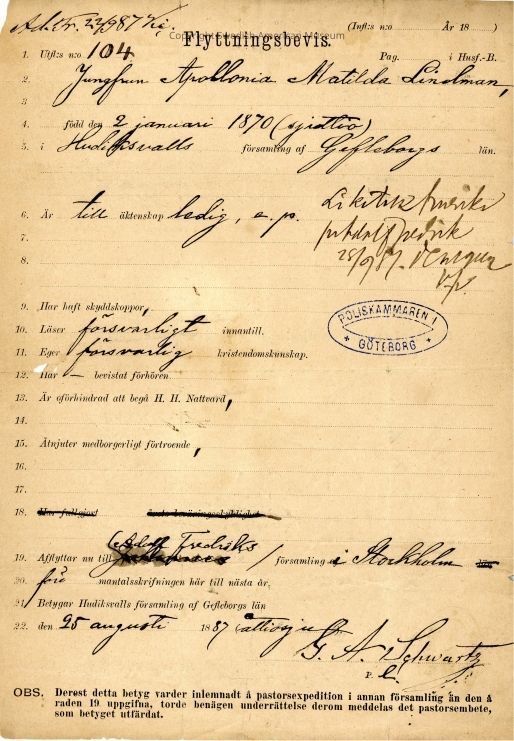 Ad. Fr. 22/9 87
Copyright Swedish American Museum
(Infl:s n:o År 18 )
Flyttningsbevis.
1. Utfl:s n:o 104. Pag. i Husf.-B.
2. Jungfrun Apollonia Matilda Lindman,
3.
4. född den 2 januari 1870 (sjuttio)
5. i Hudiksvalls församling af Gefleborgs län.
6. Är till äktenskap ledig, e. p.
7.
8.
Amerika
Adolf Fredrik
9. Har haft skyddskoppor,
10. Läser försvarligt innantill.
11. Eger försvarlig kristendomskunskap.
12. Har — bevistat förhören.
13. Är oförhindrad att begå H. H. Nattvard,
14.
15. Åtnjuter medborgerligt förtroende,
16.
17.
18. Har fullgjort
POLISKAMMAREN I
GÖTEBORG
19. Afflyttar nu till Adolf Fredriks församling i Stockholm
20. före mantalsskrifningen här till nästa år,
21. Betygar Hudiksvalls församling af Gefleborgs län
22. den 25 augusti 1887 (åttiosju)
G. A. Schwartz
p. l.
OBS. Derest detta betyg varder inlemnadt å pastorsexpedition i annan församling än den å
raden 19 uppgifna, torde benägen underrättelse derom meddelas det pastorsembete,
som betyget utfärdat.